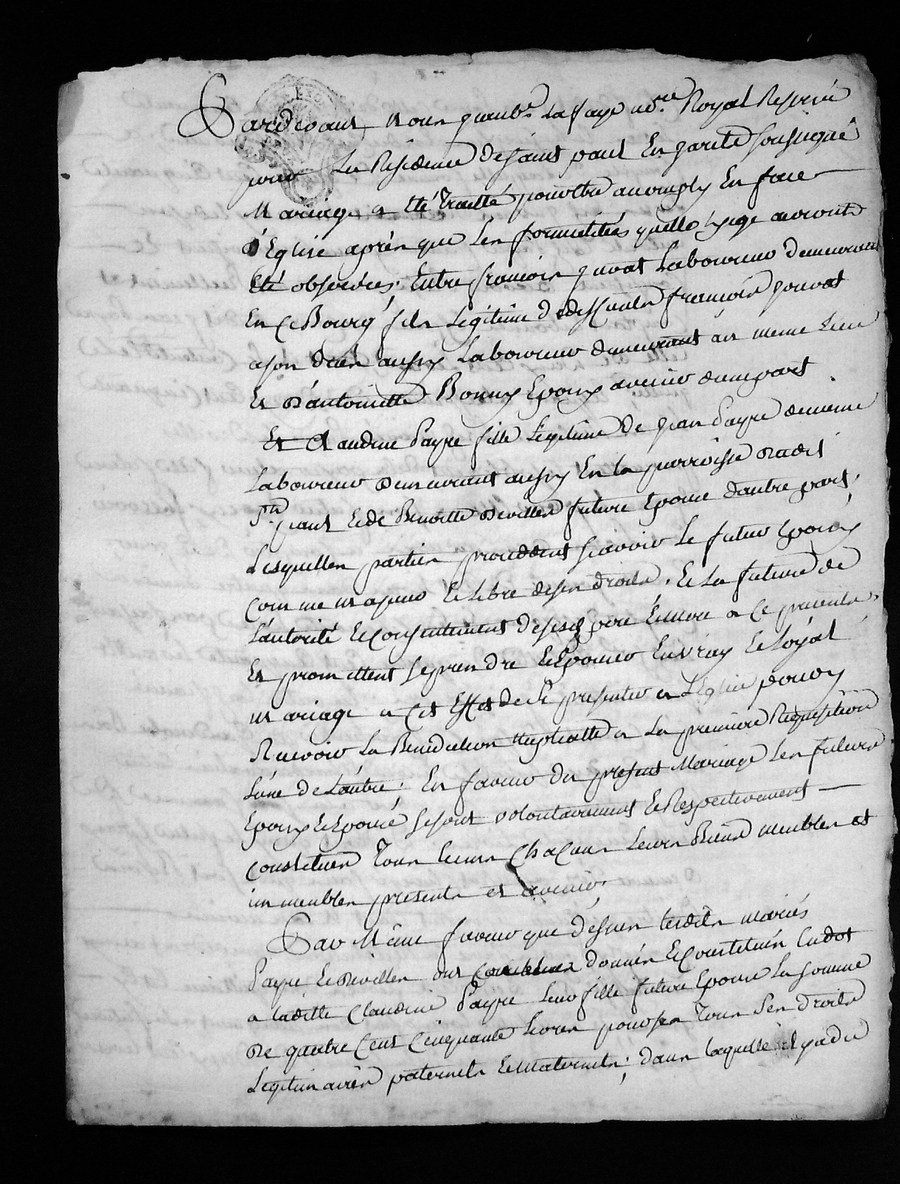 Pardevant Nous quemb.^s La faye no.^re Royal Reservé
pour La Résidence de saint paul En jarêts soussigné
Mariage a été Traitté pour être accomply En face
d'Eglise après que Les formalités quelle Exige auront
Eté observées; Entre françois jouvat Laboureur demeurant
En ce Bourg, fils Legitime d françois jouvat
aussy Laboureur demeurant au même Lieu
Et D'antoinette Bonny Epoux avenir d'une part
Et Claudine Payre fille Legitime De jean Payre de même
Laboureur Demeurant aussy En la parroisse dudit
S.^t paul Et de Benoitte Reviller future Epouse d'autre part,
Lesquelles parties procedent sçavoir Le futur Epoux
comme majeur Et Libre de ses droits, Et La future de
L'autorité Et consentement de sesd. pere Et mere a ce présents,
Et promettent se prendre Et Epouser En vray Et Loyal
mariage a cet Effet de se présenter a L'Eglise pour y
Recevoir La Benediction Nuptialle a La première Requisition
L'une de L'autre; En faveur du present Mariage Les futurs
Epoux Et Epouse se sont volontairement Et Respectivement
constitués Tous Et un Chacun Leurs Biens meubles et
immeubles presents et avenir.
Par Même faveur que dessus lesdits mariés
Payre Et Reviller ont donné Et constitué En dot
a laditte Claudine Payre Leur fille future Epouse La somme
De quatre Cent Cinquante Livres pour Tous Ses droits
Legitimaires paternels Et Maternels; dans laquelle il y a du